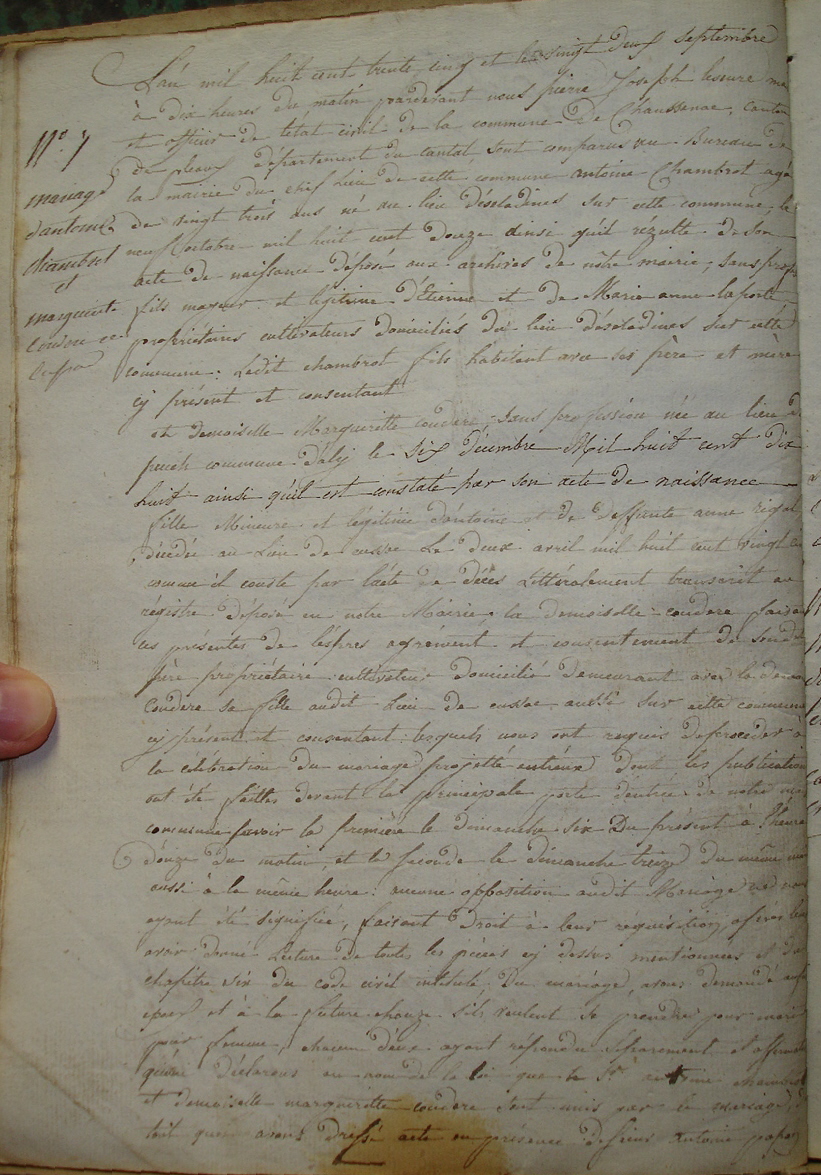 L'an mil huit cent trente cinq et le vingt deux septembre
à dix heures du matin pardevant nous pierre Joseph lescure
et officier de l'état civil de la commune de Chaussenac, canton
de pleaux département du cantal, sont comparus au Bureau de
la mairie du chef lieu de cette commune antoine Chambrot agé
de vingt trois ans né au lieu d'éscladines sur cette commune le
neuf octobre mil huit cent douze ainsi qu'il rézulte de son
acte de naissance déposé aux archives de nôtre mairie, sans
fils majeur et légitime d'Etienne et de Marie anne laporte,
propriétaires cultivateurs domiciliés du lieu d'éscladines sur cette
commune: Ledit chambrot fils habitant avec ses père et mère
cy présent et consentant
N.º 7
mariage
d'antoine
chambrot
et
marguerite
coudere
et demoiselle Margueritte coudere, sans profession née au lieu de
puech commune d'ally le six décembre Mil huit cent dix
huit ainsi qu'il est constaté par son acte de naissance
fille Mineure et légitime d'antoine et de deffunte anne rigal
décédée au Lieu de cussac Le deux avril mil huit cent vingt
comme il conste par l'acte de décès Littéralement transcrit au
régistre déposé en notre Mairie; la demoiselle coudere
les présentes de l'éxpres agrement et consentement de
père propriétaire cultivateur domicilié demeurant avec la
coudere sa fille audit Lieu de cussac aussi sur cette commune
cy présent et consentant: lesquels nous ont requis de proceder à
la celébration du mariage projetté entr'eux dont les publications
ont été faittes devant la principale porte d'entrée de notre
commune savoir la première le dimanche six Du présent à l'heure
douze du matin, et la seconde le dimanche treize du même
aussi à la même heure: aucune opposition audit Mariage
ayant été signifiée, faisant Droit à leur réquisition, après
avoir donné Lecture de toutes les pièces cy dessus mentionnées et du
chapitre six du code civil intitulé, Du mariage, avons demandé au
époux et à la future s'ils veulent se prendre pour mari
pour femme, chacun d'eux ayant répondu séparement et
déclarons au nom de la loi que le Sr antoine chambrot
et demoiselle marguerette coudere sont unis par le mariage,
tout quoi avons dréssé acte en présence de sieurs Antoine